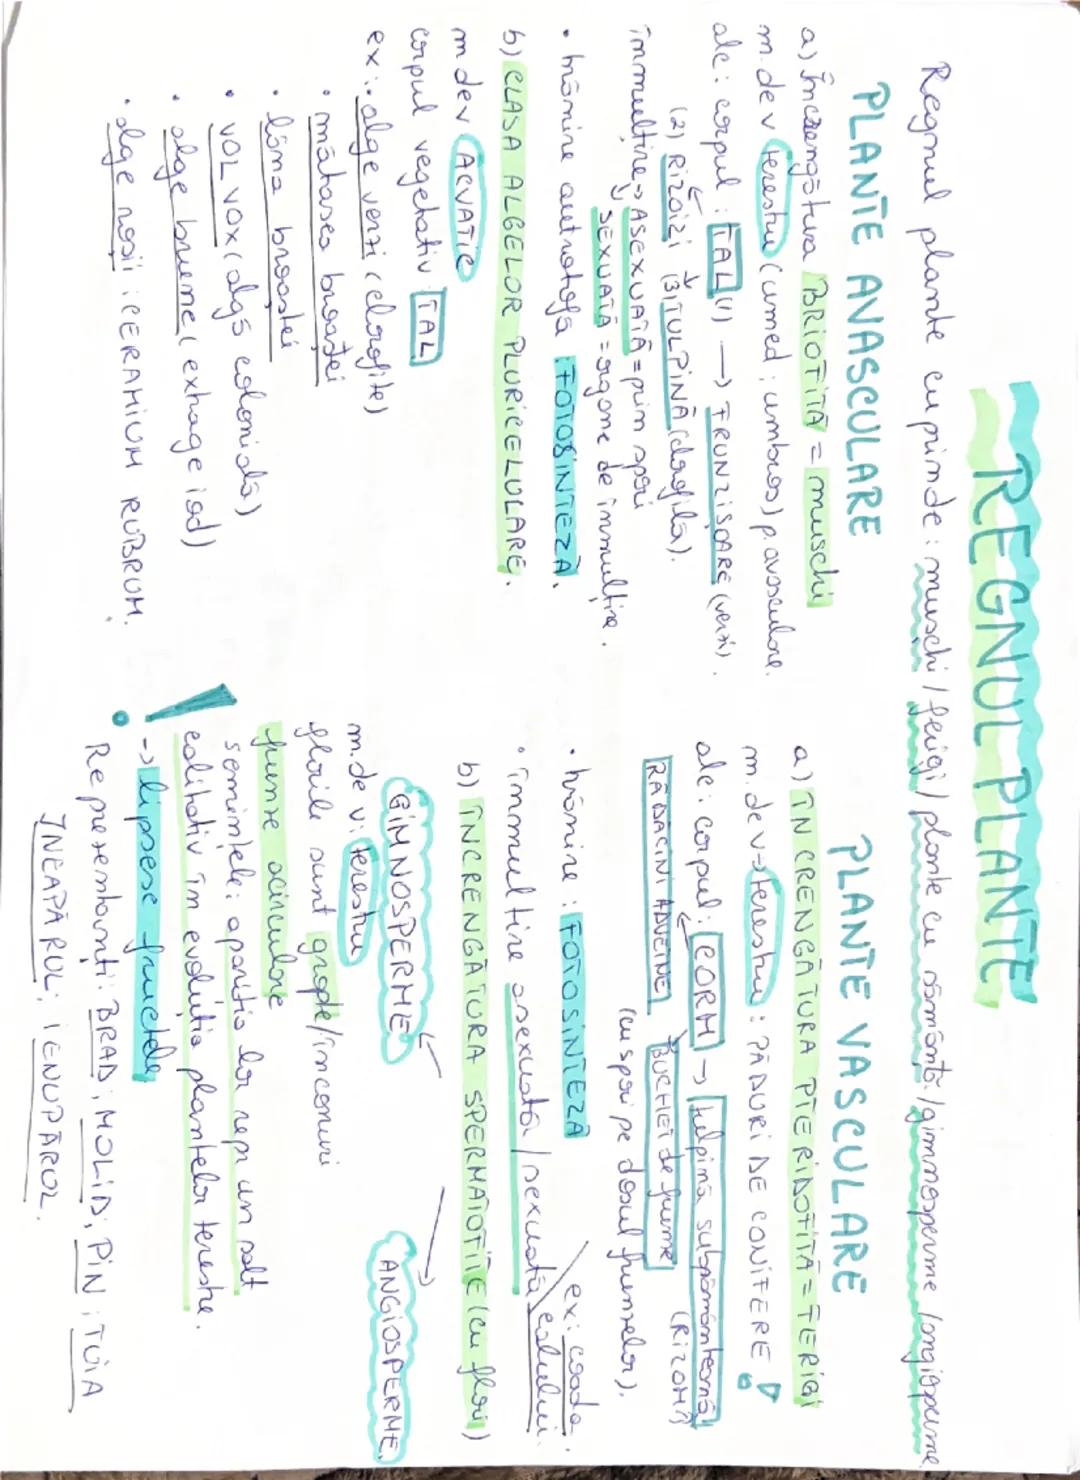 REGNUL PLANTE
Regnul plante cuprinde: muschi / ferigi / plante cu sămânță: / gimnosperme / angiosperme
PLANTE AVASCULARE
a) Încrengătura BRIOFITA = muschi
m. de v terestru (umed; umbros) p. avasculare.
alc: corpul: TAL (1) → FRUNZISOARE (verzi).
(2) RIZOIZI (3) TULPINĂ (clorofilă).
înmulțire → ASEXUATĂ = prin spori
SEXUATĂ = organe de înmulțire.
• hrănire autrotofă: FOTOSINTEZĂ.
b) CLASA ALGELOR PLURICELULARE.
m dev ACVATIC
corpul vegetativ: TAL
ex: • alge verzi (clorofite)
• mătasea broastei
• lâna broastei
• VOLVOX (algă colonială)
• alge brune (extrage iod)
• alge rosii: CERAMIUM RUBRUM.
PLANTE VASCULARE
a) ÎNCRENGĂTURA PTERIDOFITA = FERIGI
m. de v → terestru: PĂDURI DE CONIFERE!
alc: corpul: CORM → tulpină subpământeană
(RIZOM)
RĂDĂCINI ADVEINE BUCHET de frunze
(cu spori pe dosul frunzelor).
• hrănire: FOTOSINTEZĂ
ex: coada calului.
• înmultire asexuată / sexuată
b) ÎNCRENGĂTURA SPERMATOFITE (cu flori)
GIMNOSPERME
ANGIOSPERME
m. de v: terestru
florile sunt grupte/în conuri
frunze aciculare
semintele: aparitia lor repr un salt
calitativ în evolutia plantelor terestre.
! → lipsesc fructele
Reprezentanți: BRAD; MOLID; PIN; TUIA
JNEAPĂRUL; IENUPĂRUL.